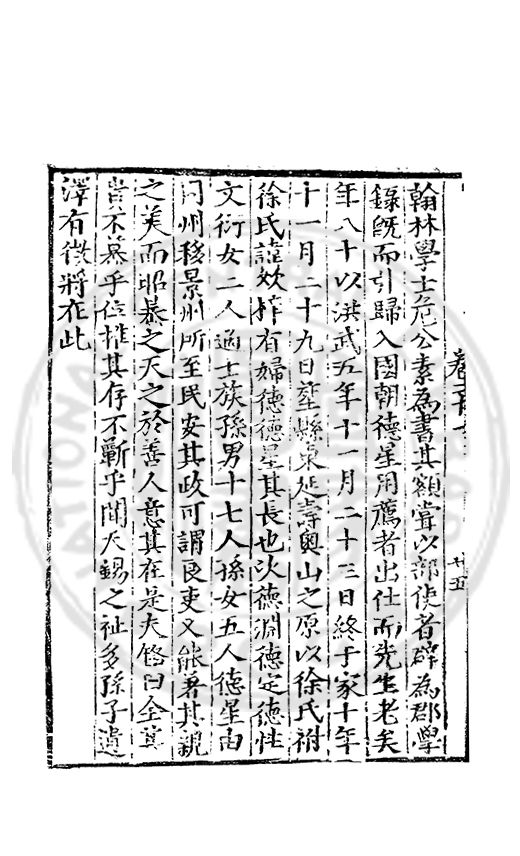 翰林學士危公素為書其額嘗以部使者辟為郡學
錄旣而引歸入國朝德星用薦者出仕而先生老矣
年八十以洪武五年十一月二十三日終于家十年
十一月二十九日塟縣東延壽奧山之原以徐氏祔
徐氏諠欸柞有婦德德星其長也次德淵德定德性
文衍女二人適士族孫男十七人孫女五人德星由
同州移景州所至民安其政可謂良吏又能著其親
之美而昭暴之天之於善人意其在是夫銘曰全其
貴不暴乎位推其存不蘄乎聞天錫之祉多孫子遺
澤有徵將在此
廿五